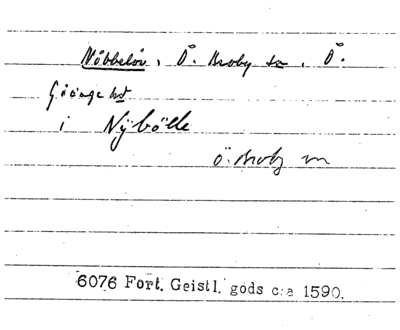 Nöbbelöv, Ö. Broby sn, Ö.
Göinge hd
i Nÿbölle
Ö. Broby sn
6076 Fort. Geistl. gods c:a 1590.